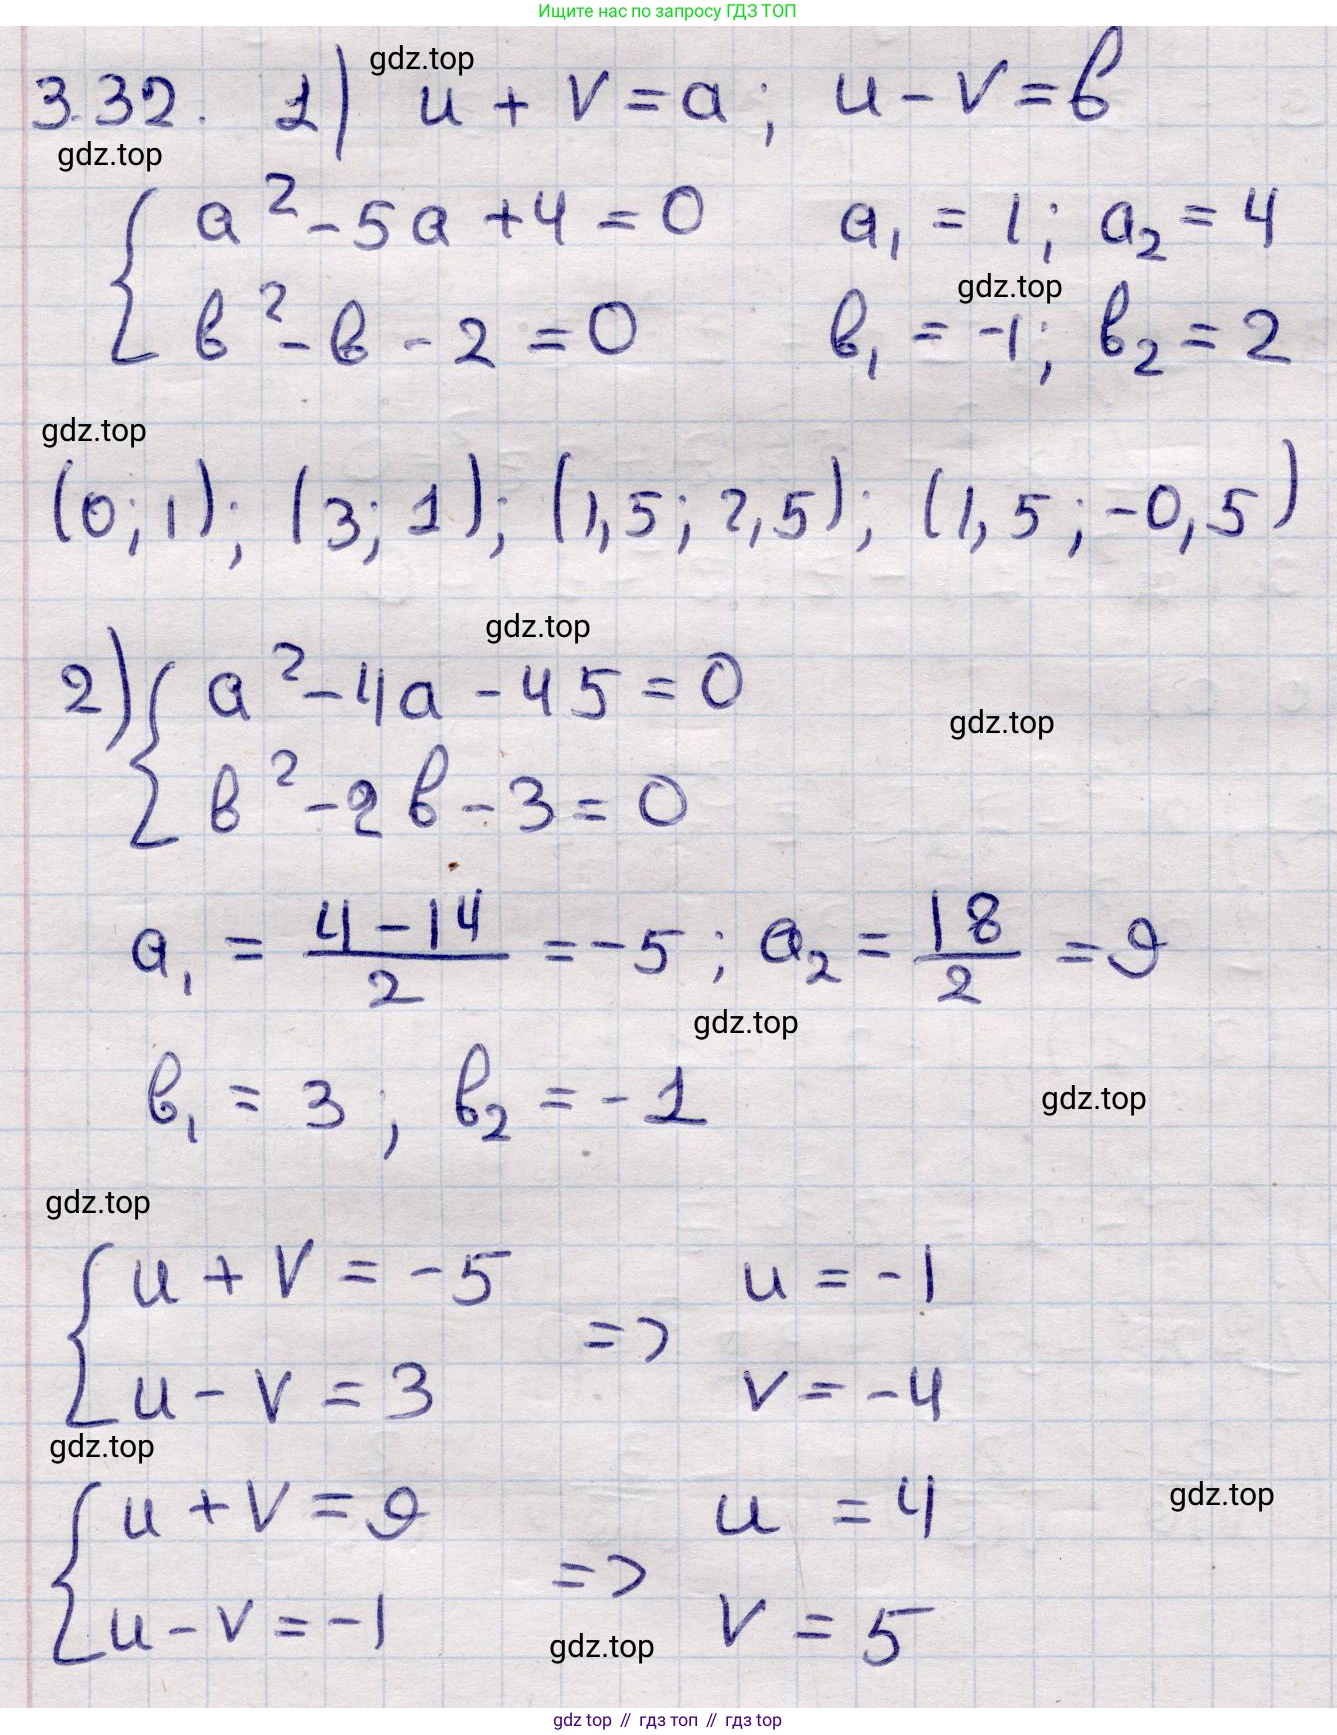 Ищите нас по запросу ГДЗ ТОП
gdz.top
3.32. 1) u + v = a; u - v = b
gdz.top
{ a² - 5a + 4 = 0 a₁ = 1; a₂ = 4
gdz.top
b² - b - 2 = 0 b₁ = -1; b₂ = 2
gdz.top
(0; 1); (3; 1); (1,5; 2,5); (1,5; -0,5)
gdz.top
2) { a² - 4a - 45 = 0
gdz.top
b² - 2b - 3 = 0
a₁ = (4 - 14)/2 = -5; a₂ = 18/2 = 9
gdz.top
b₁ = 3; b₂ = -1
gdz.top
gdz.top
{ u + v = -5 => u = -1
u - v = 3 v = -4
gdz.top
{ u + v = 9 => u = 4
gdz.top
u - v = -1 v = 5
gdz.top
gdz top // гдз топ // гдз top